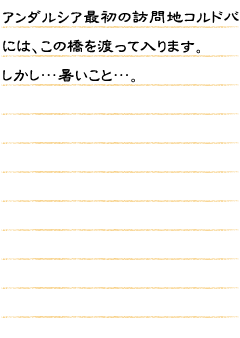 アンダルシア最初の訪問地コルドバ
には、この橋を渡って入ります。
しかし…暑いこと…。